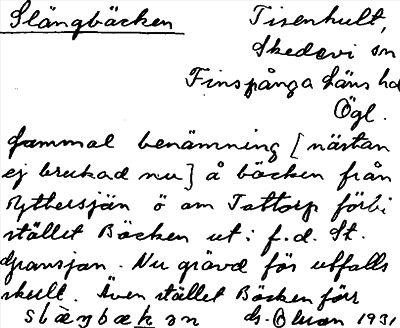 Slängbäcken
Tisenhult,
Skedevi sn
Finspånga läns hd
Ögl.
Gammal benämning [nästan
ej brukad nu] å bäcken från
Ryttersjön ö om Tattorp förbi
stället Bäcken ut i f.d. St.
Gransjön. Nu grävd för utfalls
skull. Även stället Bäcken förr
slæŋbækən G. Olsson 1931